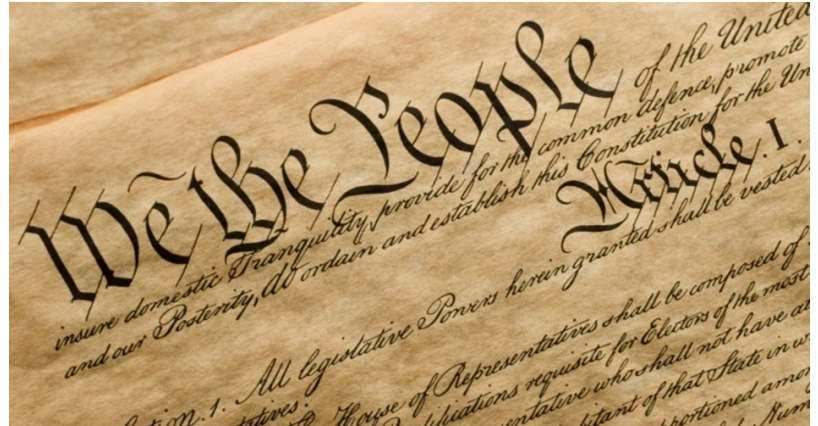 We the People of the United
insure domestic Tranquility, provide for the common defence, promote
and our Posterity, do ordain and establish this Constitution for the Un
Article. I.
ction. 1. All legislative Powers herein granted shall be vested
tatives.
House of Representatives shall be composed of
lifications requisite for Electors of the most
entative who shall not have at
bitant of that State in w
portioned amon
Num